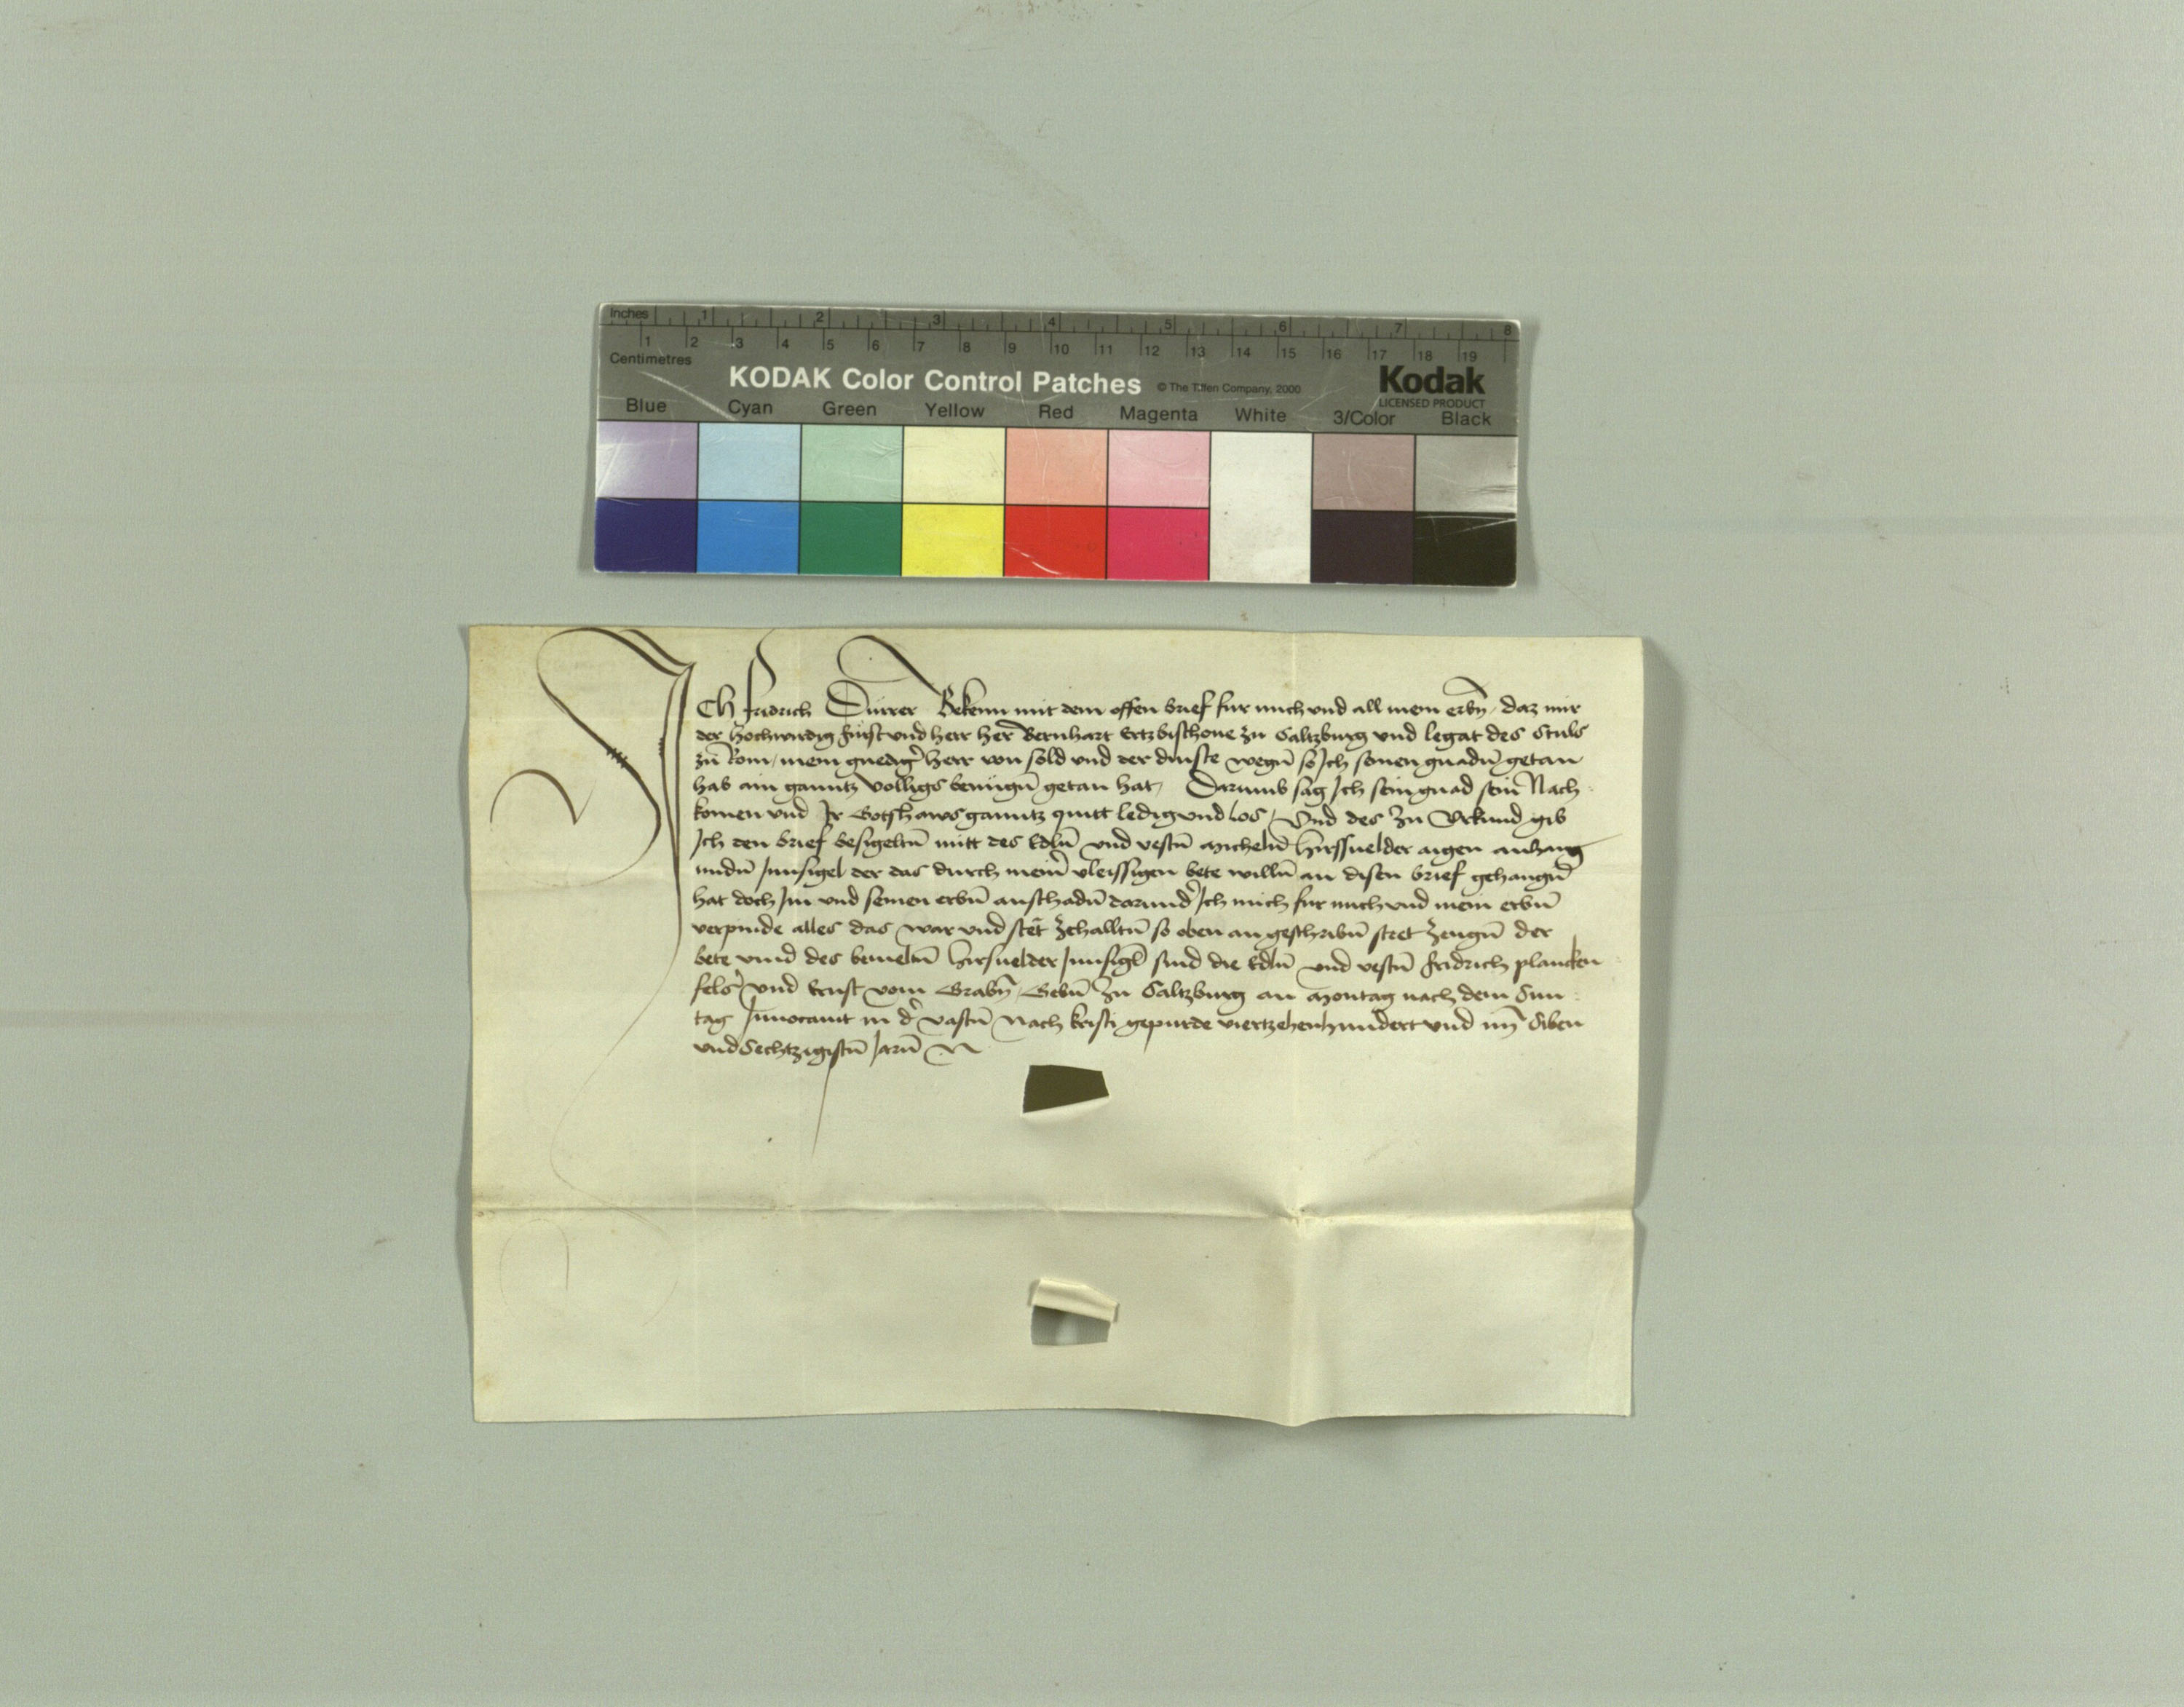 Inches 1 2 3 4 5 6 7 8
1 2 3 4 5 6 7 8 9 10 11 12 13 14 15 16 17 18 19
Centimetres
KODAK Color Control Patches © The Tiffen Company, 2000 Kodak
LICENSED PRODUCT
Blue Cyan Green Yellow Red Magenta White 3/Color Black
ICh fridrich Dürrer Bekenn mit dem offen brief fur mich und all mein erbn̄ / daz mir
der hochwirdig fürst und herr her Bernhart Ertzbischoue zu Saltzburg und legat des Stuls
zu Rom / mein gnedigˀ herr von sold und der dinste wegn̄ so Ich seinen gnadn̄ getan
hab ain ganntz volligs benügn̄ getan hat / Darumb sag Ich sein gnad sein Nach
komen und Ir Gotshaws ganntz quitt ledig und los / Vnd des zu Vrkund gib
Ich den brief besigeltn̄ mitt des Edln̄ und vestn̄ Micheln̄ Hirssuelder aigen anhang
undn̄ Innsigel der das durch meinˀ vleissigen bete willn̄ an disen brief gehangn̄
hat doch Im und seinen erbn̄ anschadn̄ darundˀ Ich mich fur mich und mein erbn̄
verpinde alles das war und stet zehalltn̄ so oben an geschribn̄ stet Zeugn̄ der
bete umd des bemeltn̄ Hirsuelder Innsigl sind die Edln̄ und vestn̄ fridrich plancken
felsˀ und Ernst vom Grabn̄ / Gebn̄ Zu Saltzburg an Montag nach dem Sun
tag Innocauit in dˀ vastn̄ Nach kristi gepurde viertzehenhundert und im̄ Siben
und Sechtzigistn̄ Jarn̄